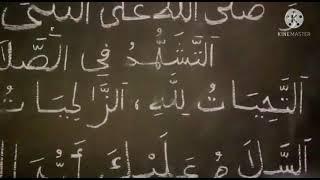 صلى الله على النبي
اَلتَّشَهُّدُ فِي الصَّلَا
اَلتَّحِيَاتُ لِلَّهِ، اَلزَّاكِيَاتُ
اَلسَّلَامُ عَلَيْكَ أَيُّهَا
KINEMASTER